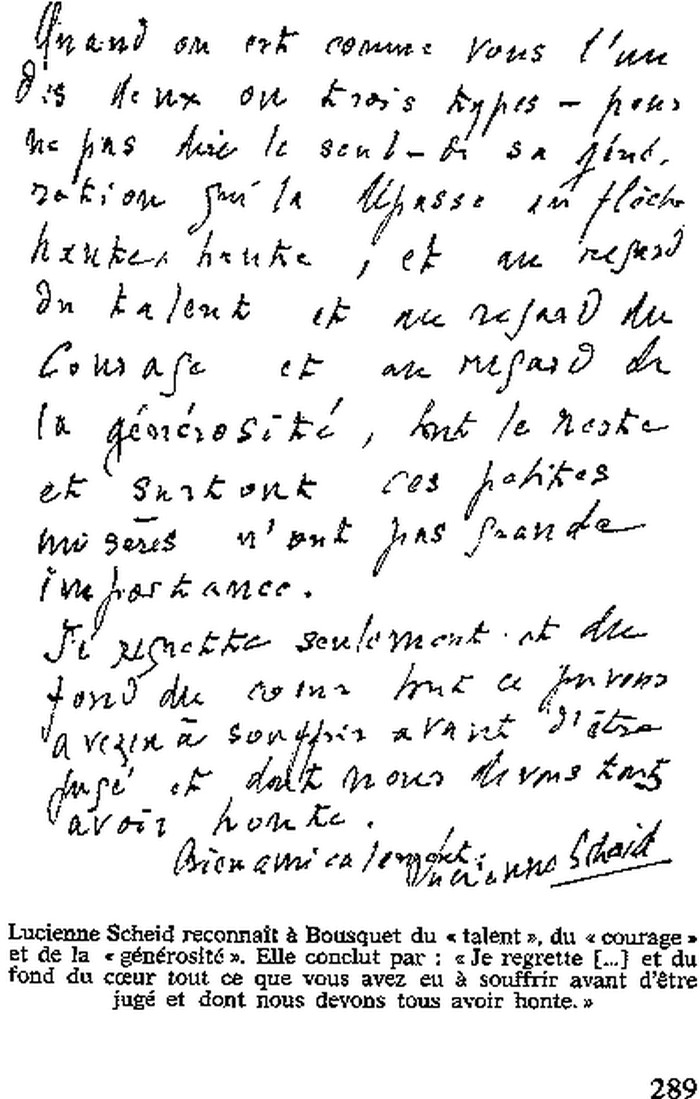 Quand on est comme vous l'un
des deux ou trois types – pour
ne pas dire le seul – de sa géné-
ration qui la dépasse en flèche
haute, haute, et au regard
du talent et au regard du
Courage et au regard de
la générosité, tout le reste
et surtout ces petites
misères n'ont pas grande
importance.
Je regrette seulement et du
fond du cœur tout ce que vous
avez eu à souffrir avant d'être
jugé et dont nous devons tous
avoir honte.
Bien amicalement.
Lucienne Scheid
Lucienne Scheid reconnaît à Bousquet du « talent », du « courage »
et de la « générosité ». Elle conclut par : « Je regrette [...] et du
fond du cœur tout ce que vous avez eu à souffrir avant d'être
jugé et dont nous devons tous avoir honte. »
289